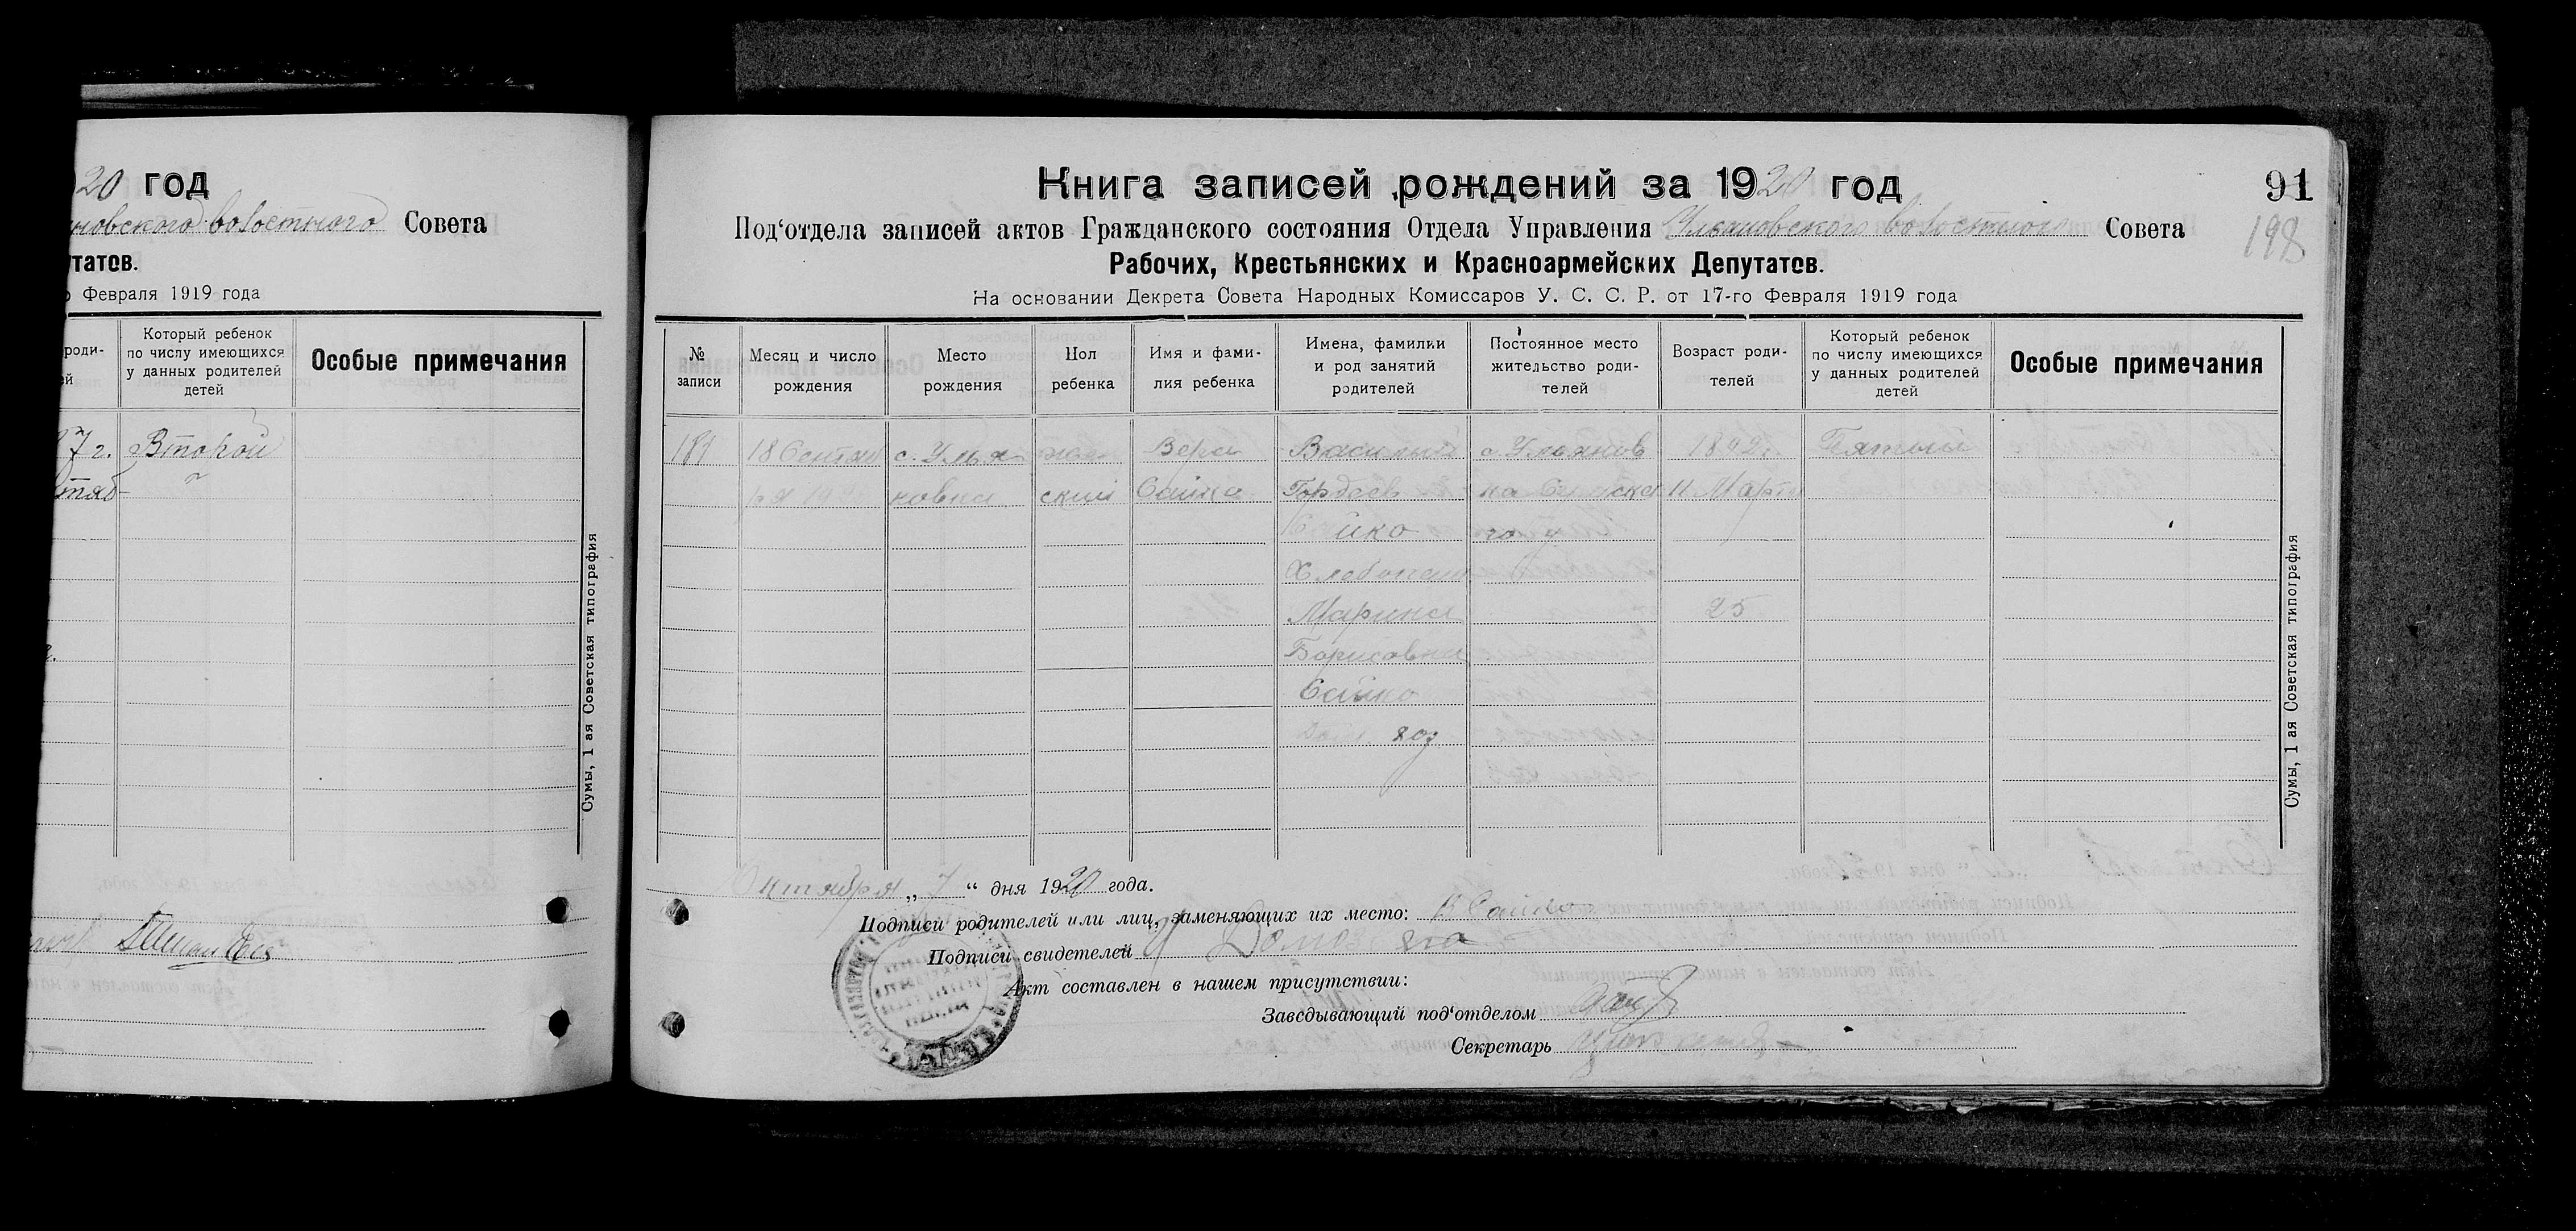 20 год
новского волостного Совета
утатов.
Февраля 1919 года
роди-
ей
Который ребенок
по числу имеющихся
у данных родителей
детей
Особые примечания
7 г. Второй
Сумы, 1 ая Советская типография
Книга записей рождений за 1920 год
91
198
Под‘отдела записей актов Гражданского состояния Отдела Управления Ульяновского волостного Совета
Рабочих, Крестьянских и Красноармейских Депутатов.
На основании Декрета Совета Народных Комиссаров У. С. С. Р. от 17-го Февраля 1919 года
№
записи
Месяц и число
рождения
Место
рождения
Пол
ребенка
Имя и фами-
лия ребенка
Имена, фамилии
и род занятий
родителей
Постоянное место
жительство роди-
телей
Возраст роди-
телей
Который ребенок
по числу имеющихся
у данных родителей
детей
Особые примечания
181 18 Сентяб с. Улья жен Вера Василий с. Ульянов 1892 г. Пятый
ря новка ский Сайко Гордеев ка Сумска Марта
йко го у
Хлебопаш
Марина 25
Борисовна
Сайко
Дом. хоз
Сумы, 1 ая Советская типография
Октября „ 7 “ дня 1920 года.
Подписи родителей или лиц, заменяющих их место: В Сайко
Подписи свидетелей
Акт составлен в нашем присутствии:
Заведывающий под‘отделом
Секретарь